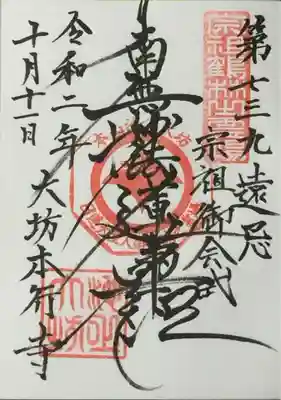 第七三九遠忌
宗祖御会式
南無妙法蓮華経
令和二年
十月十一日
大坊本行寺